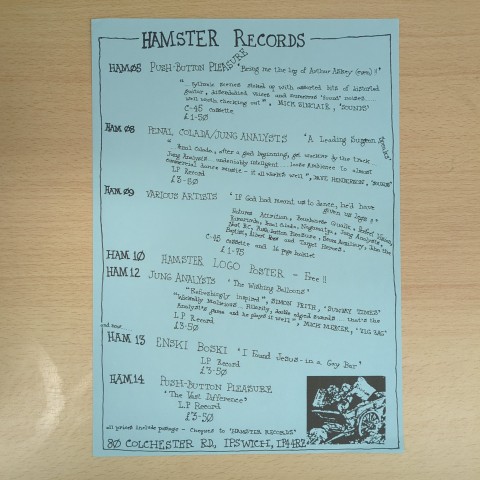 HAMSTER RECORDS
HAM 05 PUSH-BUTTON PLEASURE "Being me the leg of Arthur Askey (mum) !!"
"Idyllic scenes stoked up with assorted bits of distorted
guitar, disembodied voices and numerous 'found' noises....
well worth checking out", MICK SINCLAIR, 'SOUNDS'
C-45 cassette
£1-50
HAM 08 PENAL COLADA/JUNG ANALYSTS 'A Leading Surgeon Speaks'
"Penal Colada, after a good beginning, get wackier by the track
Jung Analysts... undeniably intelligent... Jung Audience is almost
commercial dance music - it all works well", DAVE HENDERSON, 'SOUNDS'
LP Record
£3-50
HAM 09 VARIOUS ARTISTS 'If God had meant us to dance, he'd have given us legs'
C-45 cassette and 16 page booklet
£1-75
HAM 10 HAMSTER LOGO POSTER - Free !!
HAM 12 JUNG ANALYSTS 'The Wishing Balloons'
"Refreshingly inspired", SIMON FRITH, 'SUNDAY TIMES'
"Wickedly Malicious... Hilarity, double edged swords... that's the
Analysts game and he plays it well", MICK MERCER, 'ZIG ZAG'
LP Record
£3-50
and now....
HAM 13 ENSKI BOSKI "I Found Jesus - in a Gay Bar"
LP Record
£3-50
HAM 14 PUSH-BUTTON PLEASURE
'The Vast Difference'
LP Record
£3-50
all prices include postage - Cheques to 'HAMSTER RECORDS'
80 COLCHESTER RD, IPSWICH, IP4 4RZ